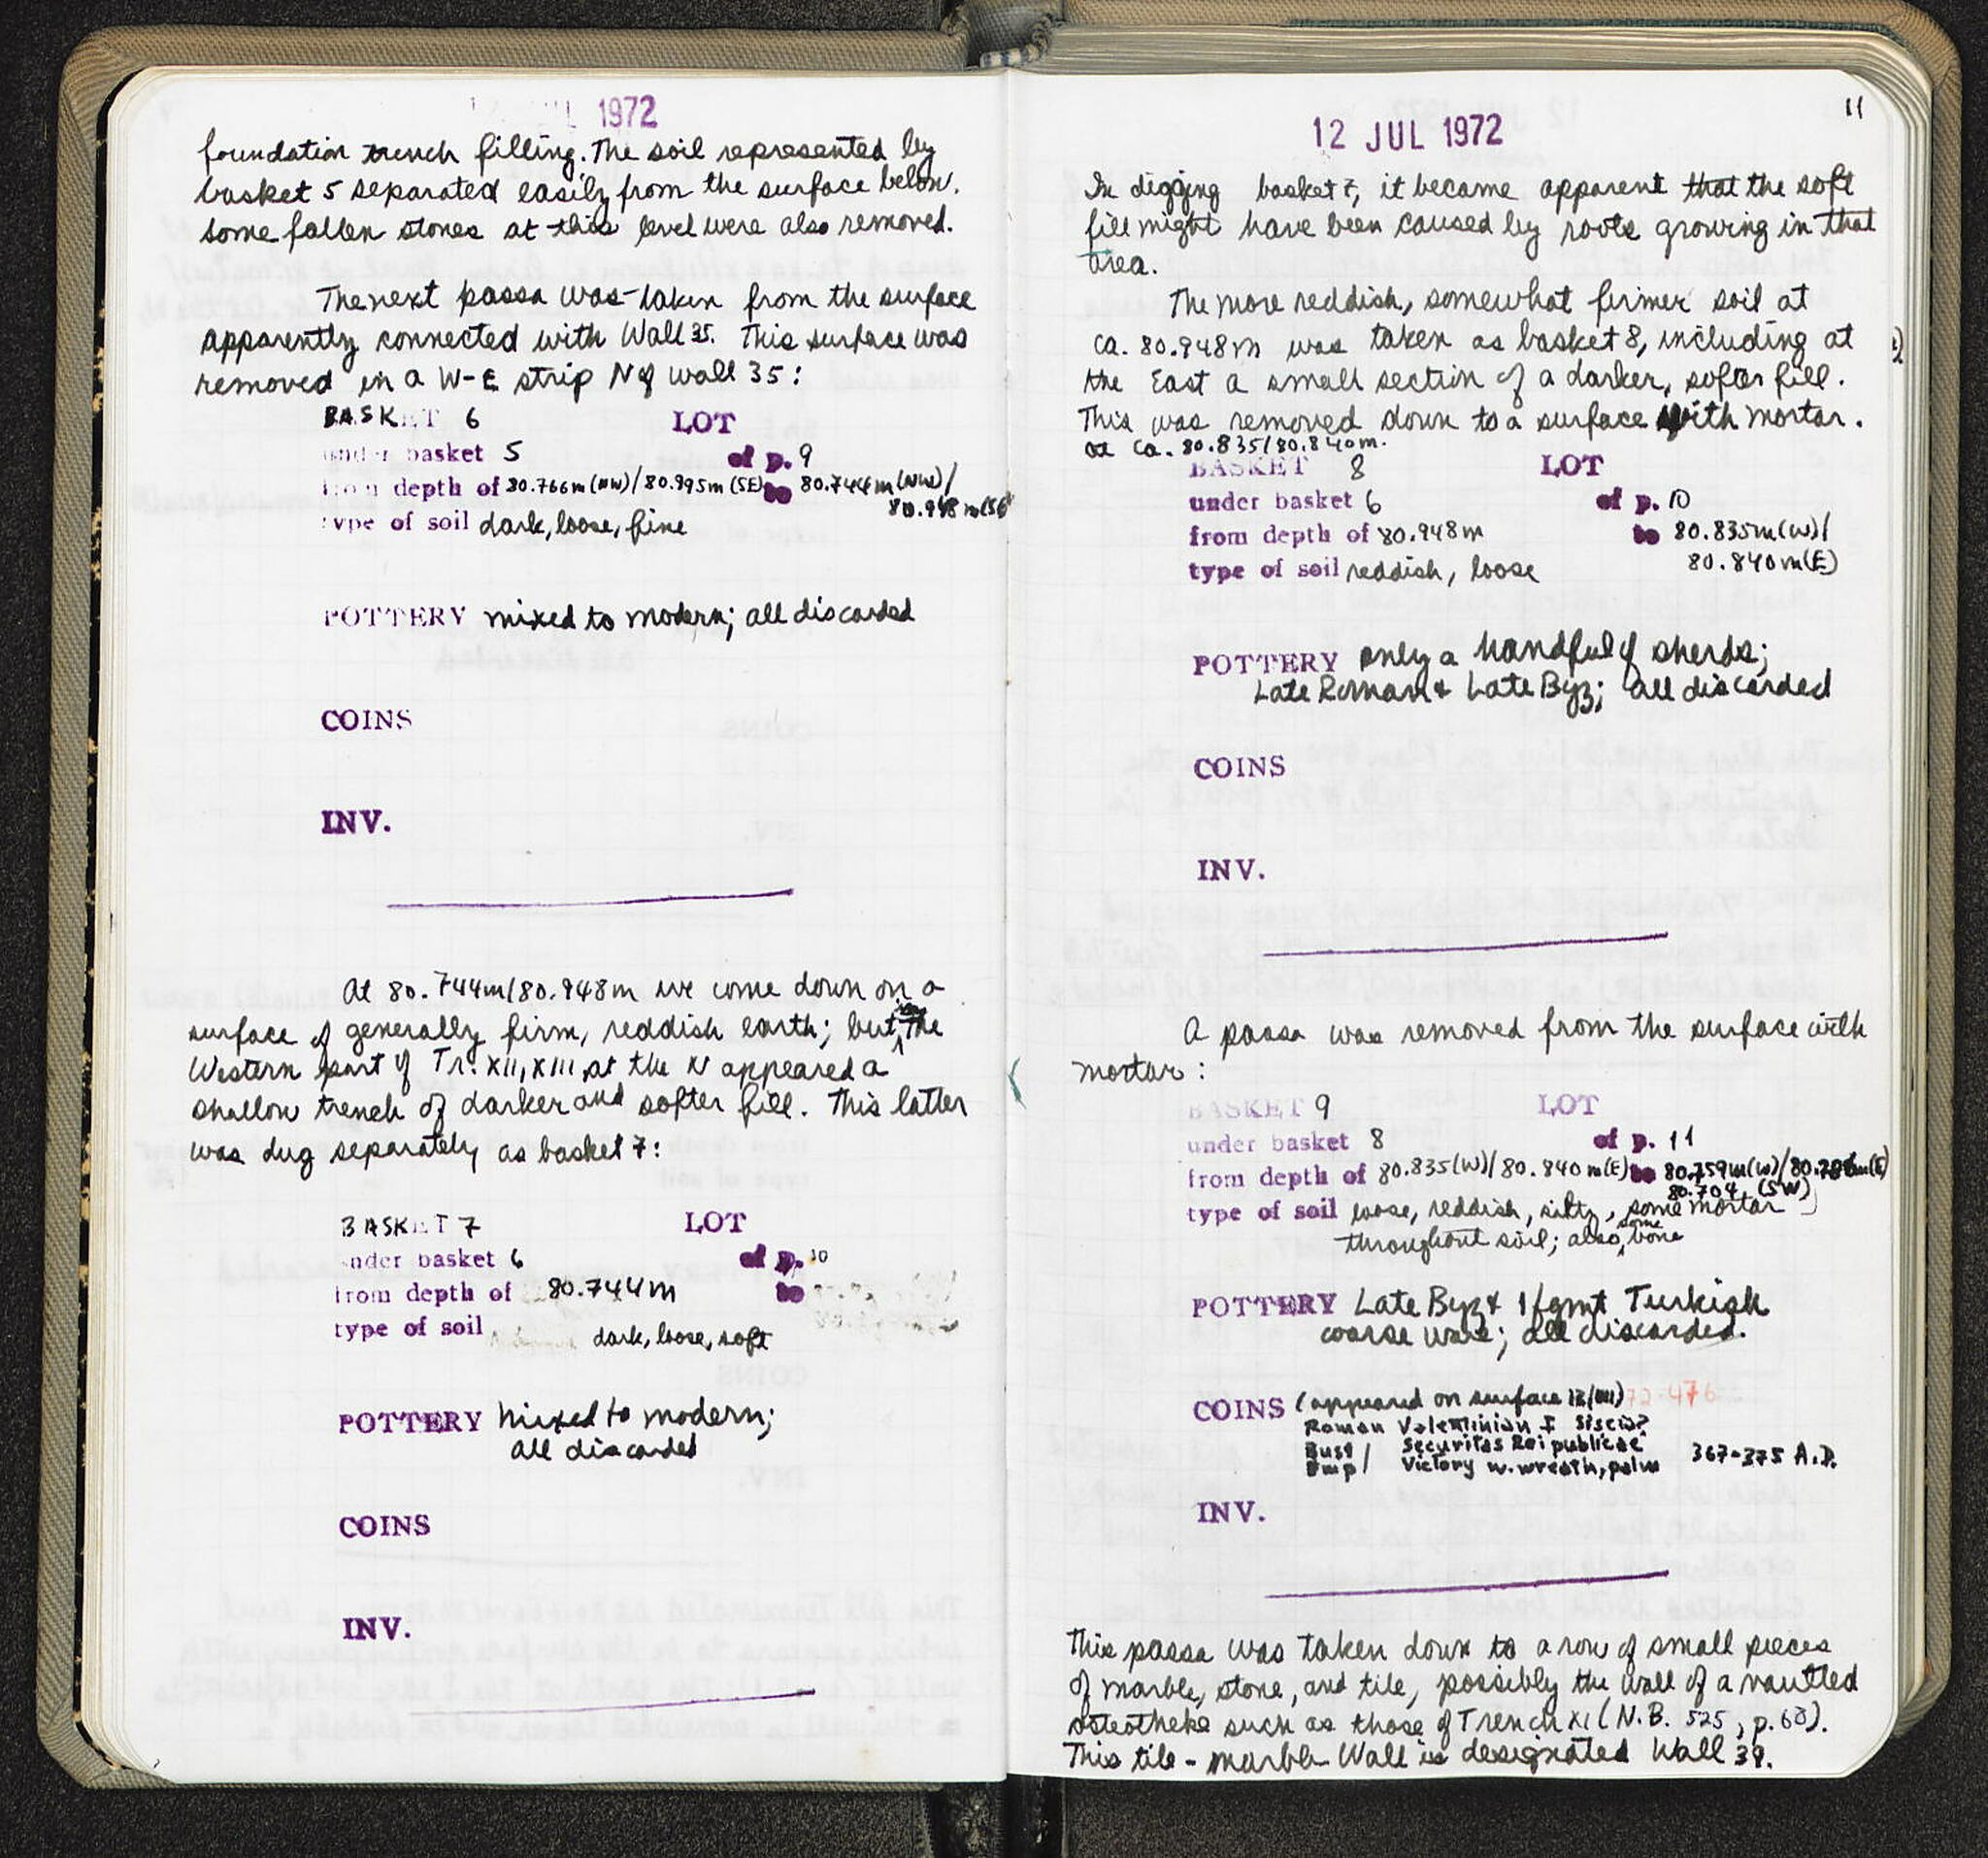 JUL 1972
foundation trench filling. The soil represented by
basket 5 separated easily from the surface below.
Some fallen stones at this level were also removed.
The next passa was taken from the surface
apparently connected with Wall 35. This surface was
removed in a W-E strip N of wall 35:
BASKET 6 LOT
under basket 5 of p. 9
from depth of 80.766m (NW)/80.995m (SE) to 80.744m (NW)/
80.948 m (SE)
type of soil dark, loose, fine
POTTERY mixed to modern; all discarded
COINS
INV.
At 80.744m/80.948m we come down on a
surface of generally firm, reddish earth; but the
Western part of Tr. XII, XIII, at the N appeared a
shallow trench of darker and softer fill. This latter
was dug separately as basket 7:
BASKET 7 LOT
under basket 6 of p. 10
from depth of 80.744m to
type of soil dark, loose, soft
POTTERY Mixed to modern;
all discarded
COINS
INV.
11
12 JUL 1972
In digging basket 7, it became apparent that the soft
fill might have been caused by roots growing in that
area.
The more reddish, somewhat firmer soil at
ca. 80.948m was taken as basket 8, including at
the East a small section of a darker, softer fill.
This was removed down to a surface with mortar.
at ca. 80.835/80.840m.
BASKET 8 LOT
under basket 6 of p. 10
from depth of 80.948m to 80.835m(W)/
80.840m(E)
type of soil reddish, loose
POTTERY only a handful of sherds;
Late Roman & Late Byz; all discarded
COINS
INV.
A passa was removed from the surface with
mortar:
BASKET 9 LOT
under basket 8 of p. 11
from depth of 80.835(W)/80.840m(E) to 80.759m(W)/
80.704 (SW)
type of soil loose, reddish, silty, some mortar
throughout soil; also some bone
POTTERY Late Byz & 1 fgmt Turkish
coarse ware; all discarded.
COINS (appeared on surface 12/VII) 72-476
Roman Valentinian I Siscia?
Bust / Securitas Reipublicae
Emp / Victory w. wreath, palm 367-375 A.D.
INV.
This passa was taken down to a row of small pieces
of marble, stone, and tile, possibly the wall of a vaulted
osteotheke such as those of Trench XI (N.B. 525, p.68).
This tile-marble Wall is designated Wall 39.